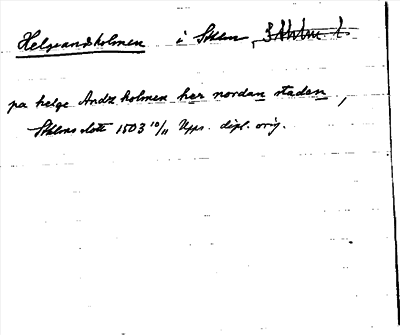 Helgeandsholmen i Sthlm, Sthlms l.
på helge Andz holmen her nordan staden,
Sthlms slott 1503 10/11 Upps. dipl. orig.